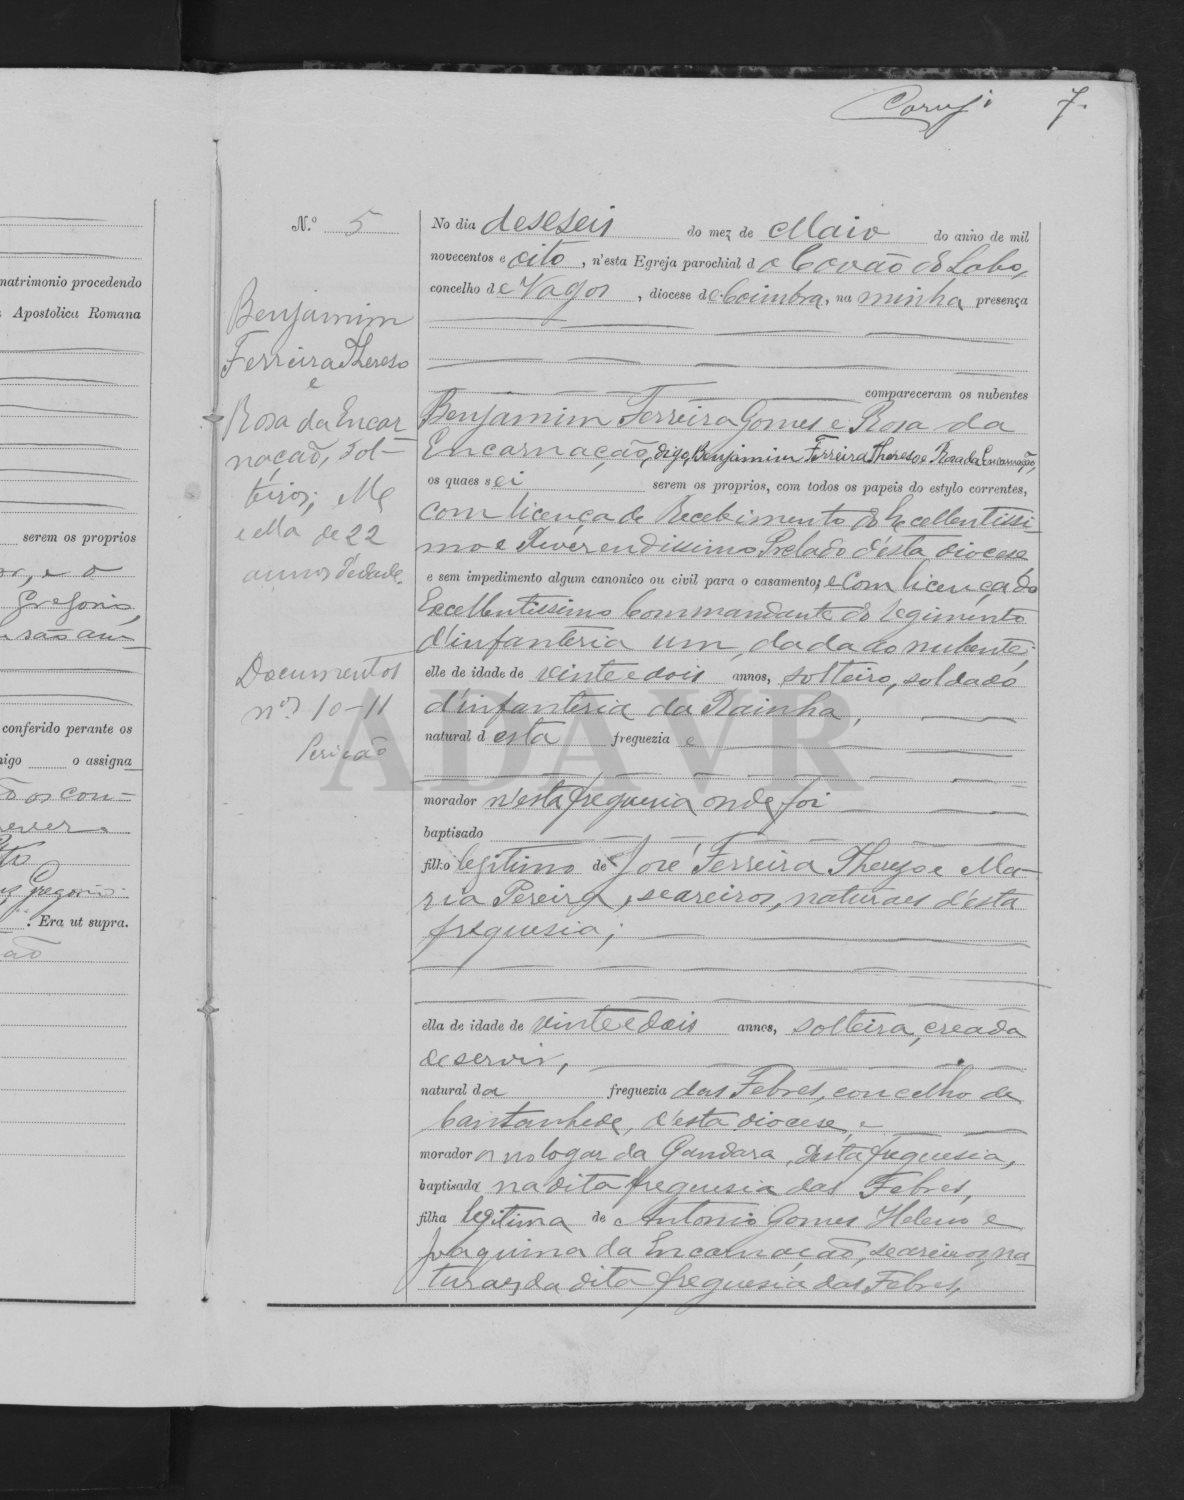 7.
matrimonio procedendo
Apostolica Romana
serem os proprios
e o
Gregorio,
são am
conferido perante os
migo o assigna
os con-
Gregorio
. Era ut supra.
N.º 5
Benjamim
Ferreira Thereso
e
Rosa da Encar
nação, Sol-
teiros; elle
e ella de 22
annos d'edade.
Documentos
nos 10-11
No dia deseseis do mez de Maio do anno de mil
novecentos e oito, n'esta Egreja parochial de Covão do Lobo,
concelho de Vagos, diocese de Coimbra, na minha presença
compareceram os nubentes
Benjamim Ferreira Gomes e Rosa da
Encarnação, digo, Benjamim Ferreira Thereso e Rosa da Encarnação,
os quaes sei serem os proprios, com todos os papeis do estylo correntes,
com licença de Recebimento do Excellentissi
mo e Reverendissimo Prelado d'esta diocese
e sem impedimento algum canonico ou civil para o casamento; e com licença do
Excellentissimo Commandante do regimento
d'infanteria um, dada ao nubente;
elle de idade de vinte e dois annos, solteiro, soldado
d'infanteria da Rainha,
natural d esta freguezia e
morador n'esta freguesia onde foi
baptisado
filho legitimo de José Ferreira Thereso e Ma-
ria Pereira, seareiros, naturaes d'esta
freguesia;
ella de idade de vinte e dois annos, solteira, creada
de servir,
natural da freguezia das Febres, concelho de
Cantanhede, d'esta diocese, e
moradora no logar da Gandara, d'esta freguesia,
baptisada na dita freguesia das Febres,
filha legitima de Antonio Gomes Heleno e
Joaquina da Encarnação, seareiros, na-
turaes da dita freguesia das Febres,
ADAVR